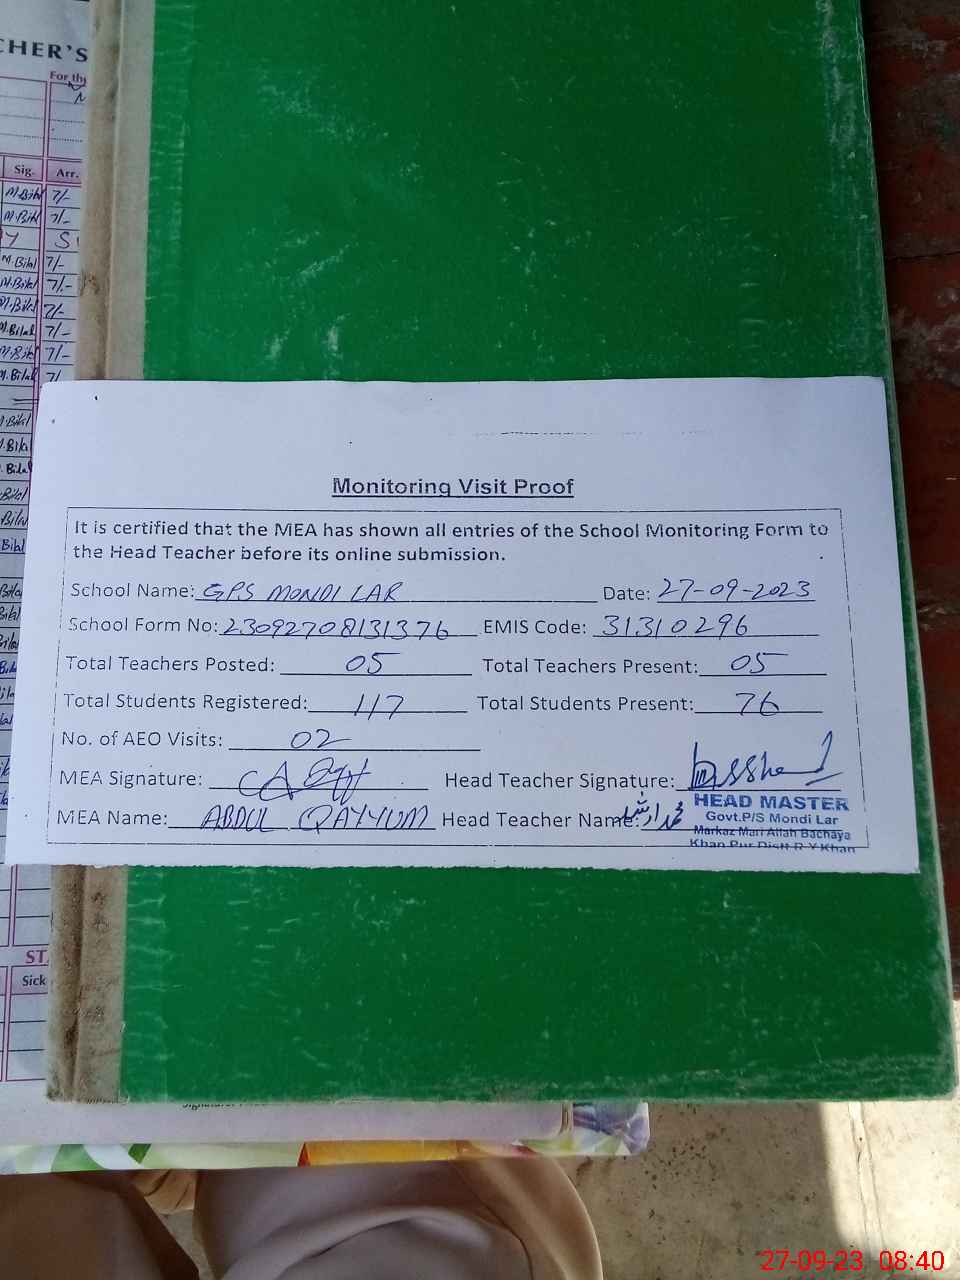 CHER'S
For th
Sig. Arr.
M.Bilal 7/-
M.Bilal 7/-
M.Bilal 7/-
M.Bilal 7/-
M.Bilal 7/-
M.Bilal 7/-
M.Bilal 7/-
M.Bilal 7/
Monitoring Visit Proof
It is certified that the MEA has shown all entries of the School Monitoring Form to
the Head Teacher before its online submission.
School Name: GPS MONDI LAR Date: 27-09-2023
School Form No: 23092708131376 EMIS Code: 31310296
Total Teachers Posted: 05 Total Teachers Present: 05
Total Students Registered: 117 Total Students Present: 76
No. of AEO Visits: 02
MEA Signature: Head Teacher Signature:
HEAD MASTER
Govt.P/S Mondi Lar
Markaz Mari Allah Bachaya
Khan Pur Distt R Y Khan
MEA Name: ABDUL QAYYUM Head Teacher Name: محمد ارشد
Sick
27-09-23 08:40